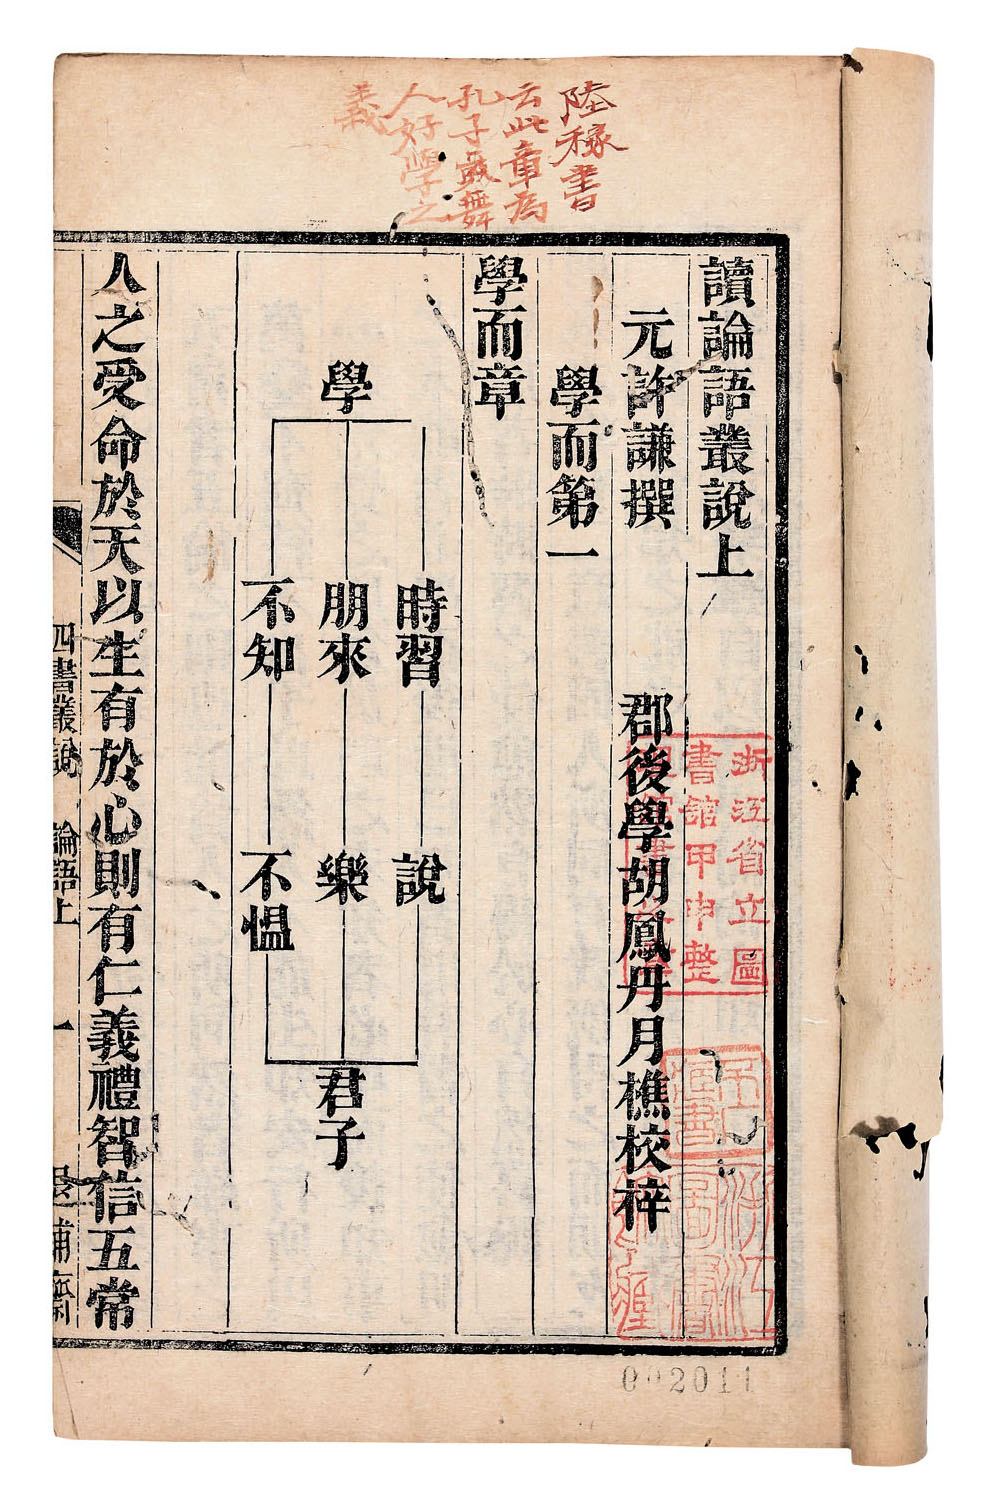 陸稼書
云此章為
孔子鼓舞
人好學之
義
讀論語叢說上
元許謙撰
郡後學胡鳳丹月樵校梓
學而第一
學而章
學
時習
說
朋來
樂
不知
不慍
君子
人之受命於天以生有於心則有仁義禮智信五常
四書叢說
論語上
一
退補齋
浙江省立圖
書館甲申整
002011